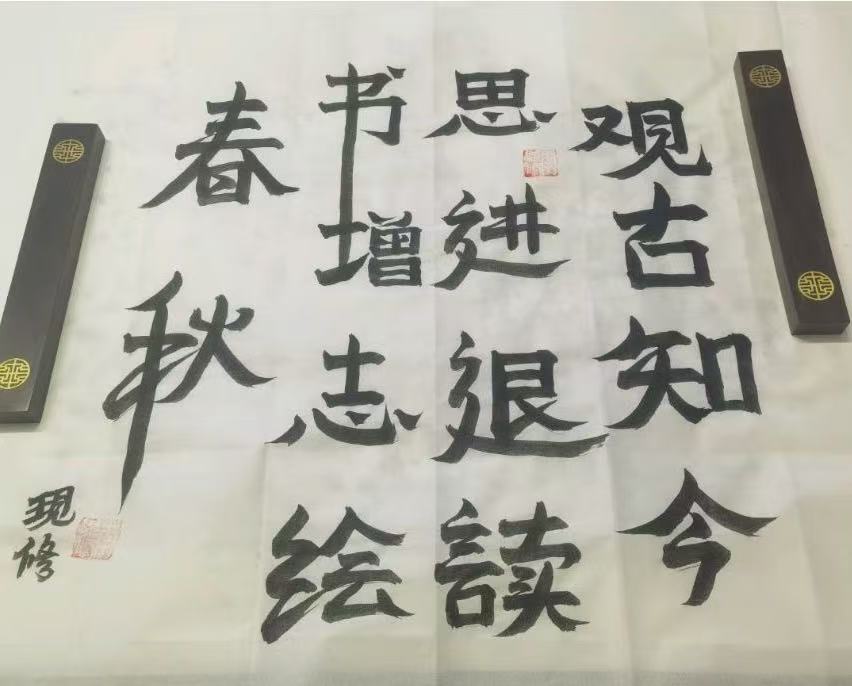 观古知今
思进退读
书增志绘
春秋
现修